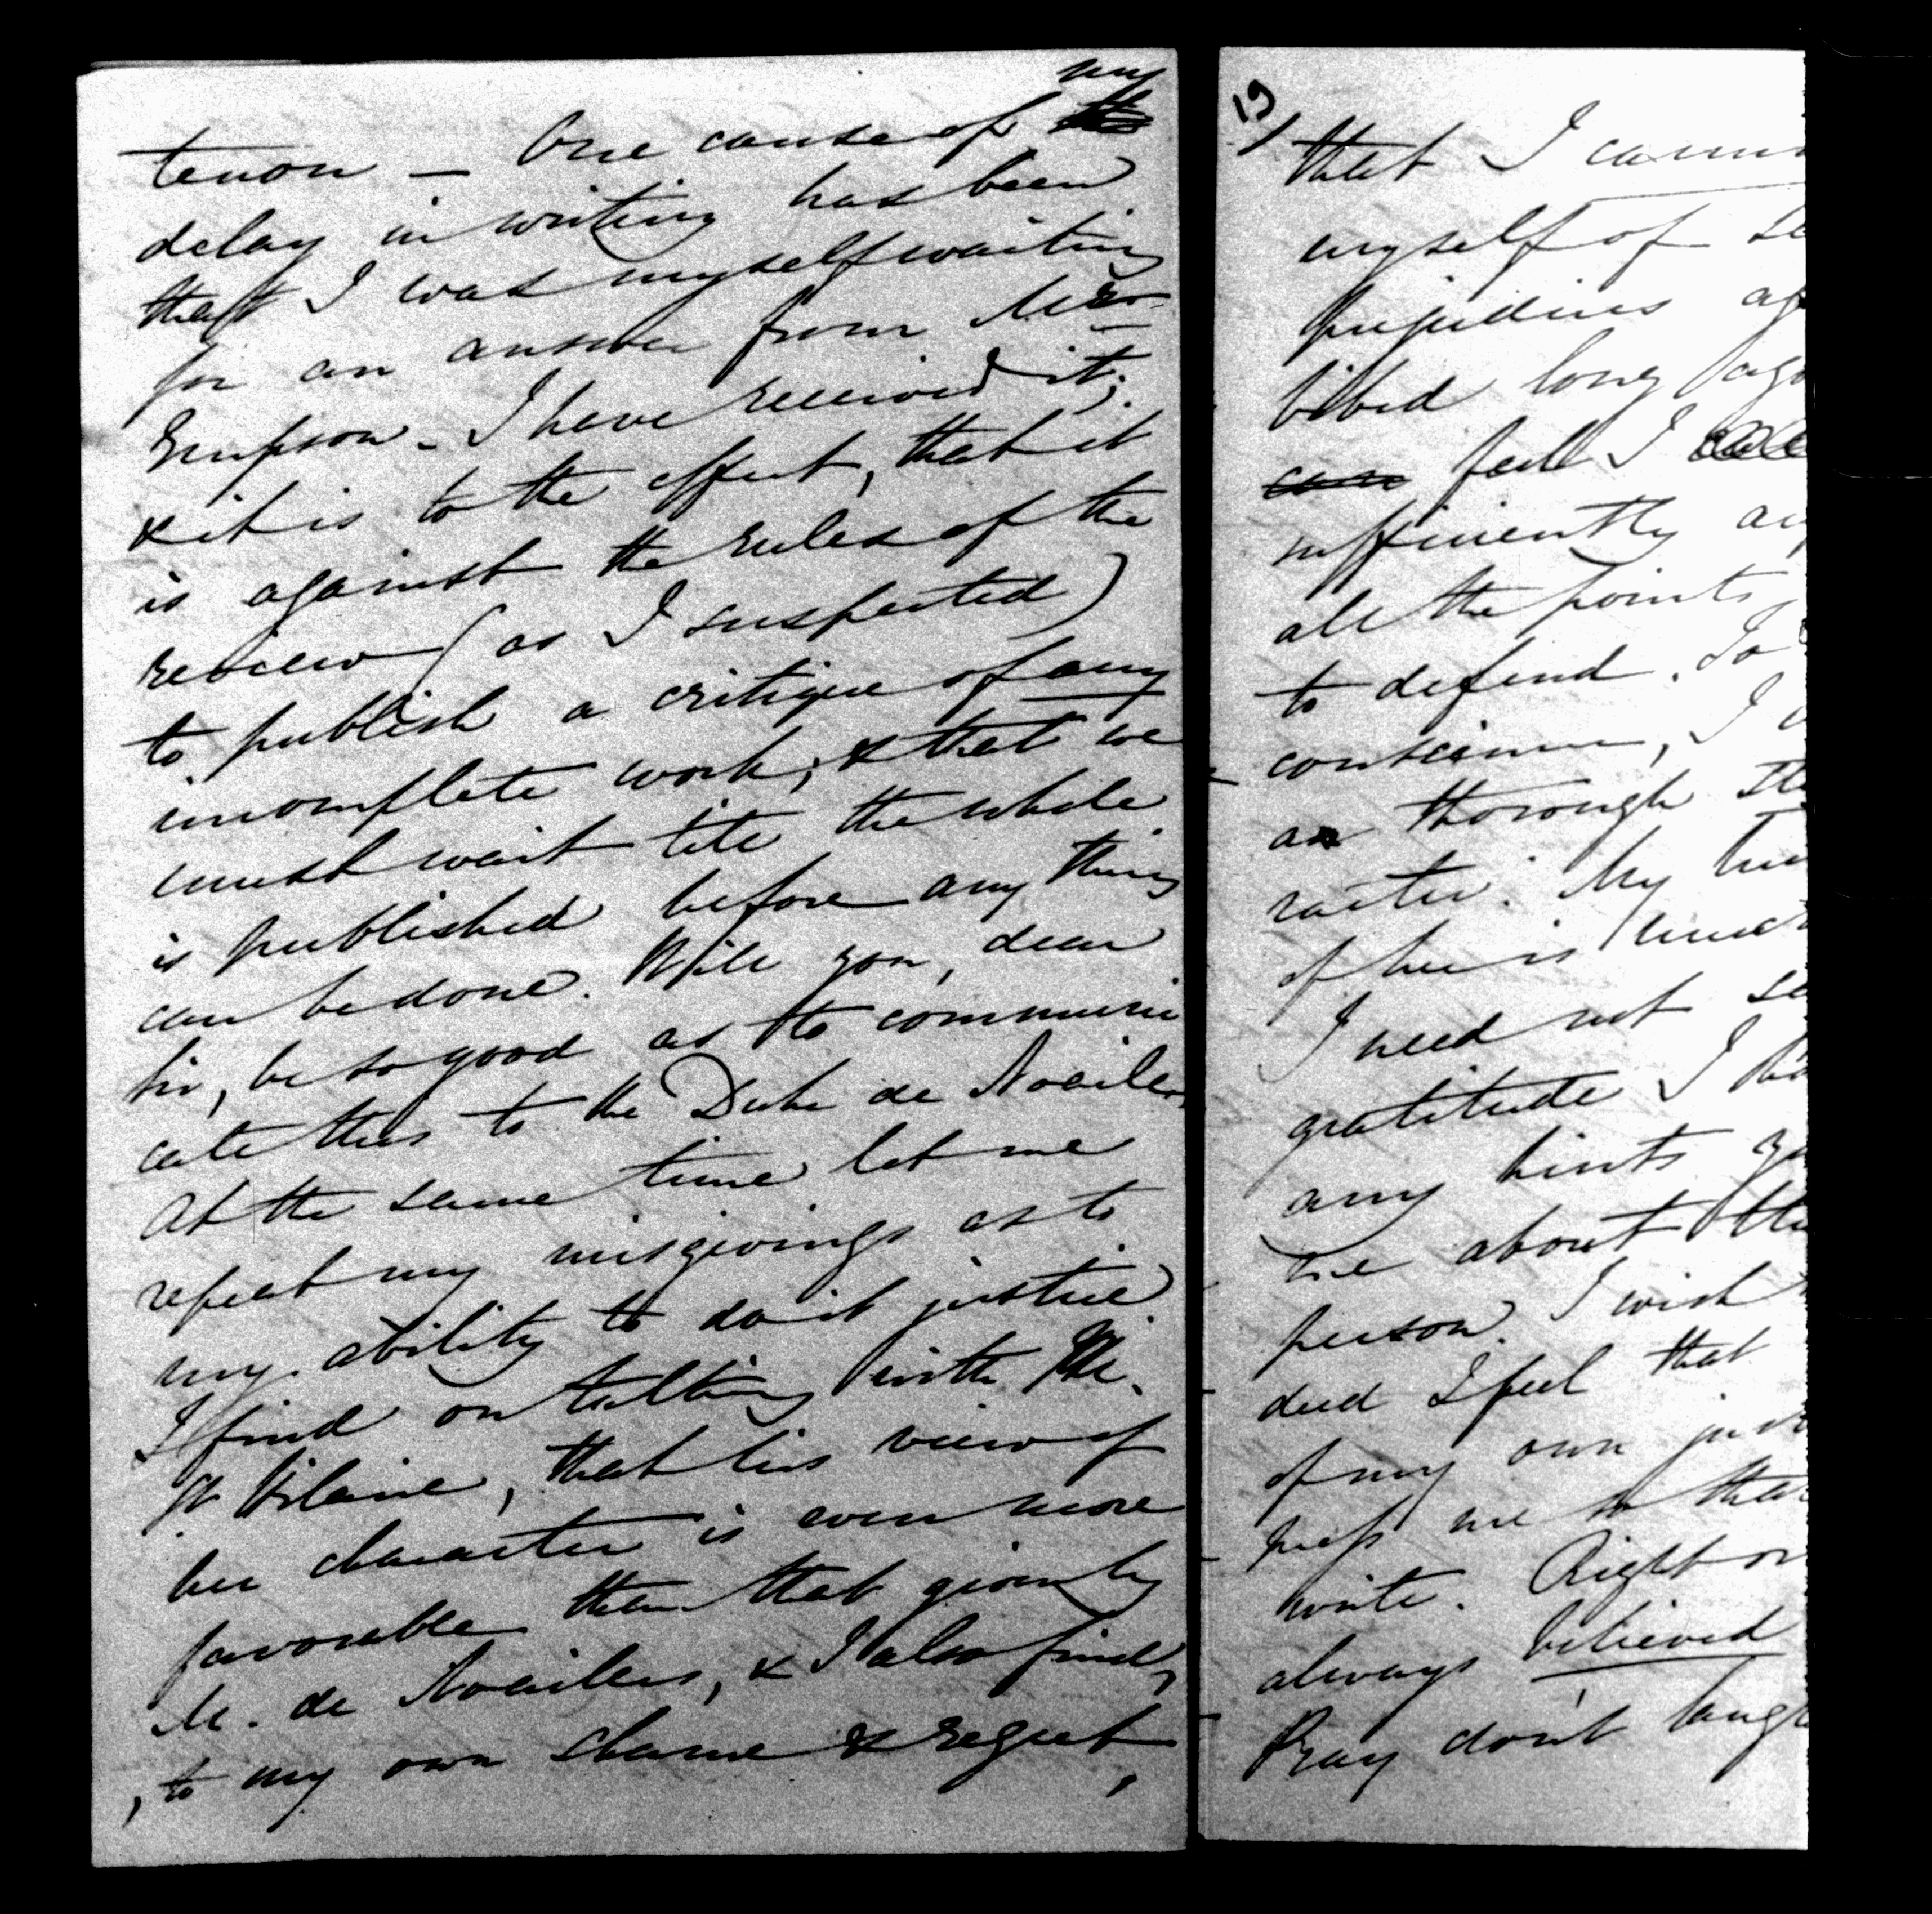 my
tenon — One cause of the
delay in writing has been
that I was myself waiting
for an answer from Mr.
Empson. I have received it;
& it is to the effect, that it
is against the rules of the
review (as I suspected)
to publish a critique of any
incomplete work; & that we
must wait till the whole
is published before any thing
can be done. Will you, dear
Sir, be so good as to communi
cate this to the Duke de Noailles.
At the same time let me
repeat my misgivings as to
my ability to do it justice.
I find on talking with M.
St Hilaire, that his view of
her character is even more
favorable than that given by
M. de Noailles, & I also find,
to my own shame & regret,
19
that I cann
myself of
prejudices ag
bibed long ago
can feel I
sufficiently
all the points
to defend. To
conscience, I
as thorough
racter. My
of her is
I need not
gratitude I
any hints
me about
person. I wish
deed I feel that
of my own
press me
write. Right or
always believed
Pray don't laugh